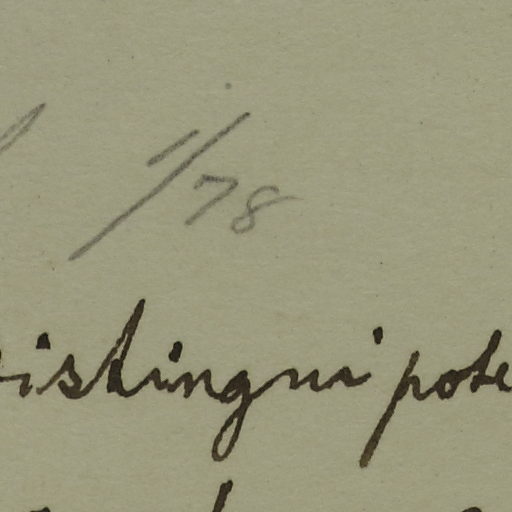 1/78
istingui pote